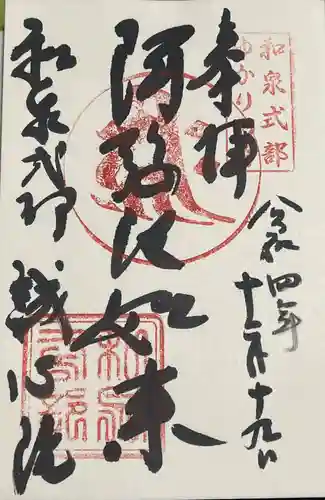 和泉式部
ゆかり
奉拝
令和四年
十二月十九日
阿弥陀如来
和泉式部
誠心院